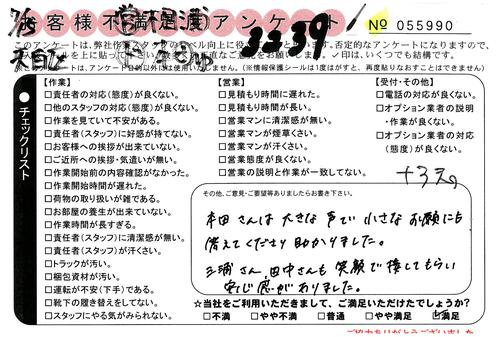 お客様不満足度アンケート
№ 055990
3239
このアンケートは、弊社作業スタッフのレベル向上に役
否定的なアンケートになりますので、
✓印は、いくつでも結構です。
アンケート目的以外には使用いたしません。(※情報保護シールは1度はがすと、再度貼りなおすことはできません)
チェックリスト
【作業】
□責任者の対応(態度)が良くない。
□他のスタッフの対応(態度)が良くない。
□作業を見ていて不安がある。
□責任者(スタッフ)に好感が持てない。
□お客様への挨拶が出来ていない。
□ご近所への挨拶・気遣いが無い。
□作業開始前の内容確認がなかった。
□作業開始時間が遅れた。
□荷物の取り扱いが雑である。
□お部屋の養生が出来ていない。
□作業時間が長すぎる。
□責任者(スタッフ)に清潔感が無い。
□責任者(スタッフ)が汗くさい。
□トラックが汚い。
□梱包資材が汚い。
□運転が不安(下手)である。
□靴下の履き替えをしてない。
□スタッフにやる気がみられない。
【営業】
□見積もり時間に遅れた。
□見積もり時間が長い。
□営業マンに清潔感が無い。
□営業マンが煙草くさい。
□営業マンが汗くさい。
□営業態度が良くない。
□営業の説明と作業が一致してない。
【受付・その他】
□電話の対応が良くない。
□オプション業者の説明
・作業が良くない。
□オプション業者の対応
(態度)が良くない。
その他、ご意見・ご要望等ありましたらお書き下さい。
本田さんは大きな声で小さなお願いにも
答えてくださり助かりました。
三浦さん、田中さんも笑顔で接してもらい
安心感がありました。
☆当社をご利用いただきまして、ご満足いただけたでしょうか?
□不満 □やや不満 □普通 □やや満足 ☑満足
ご協力ありがとうございました